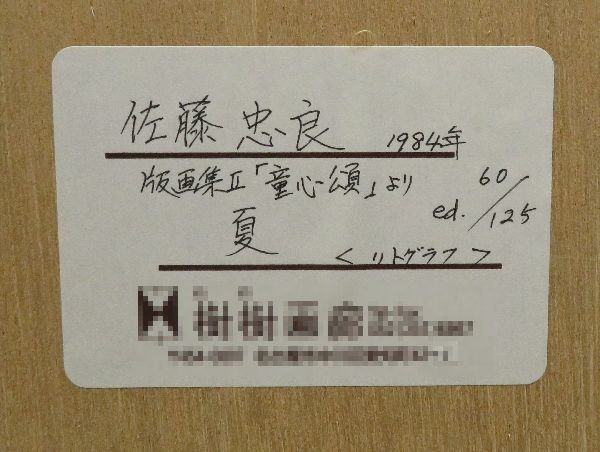 佐藤忠良 1984年
版画集Ⅱ「童心頌」より 60/125
ed.
夏 <リトグラフ>
樹樹画廊